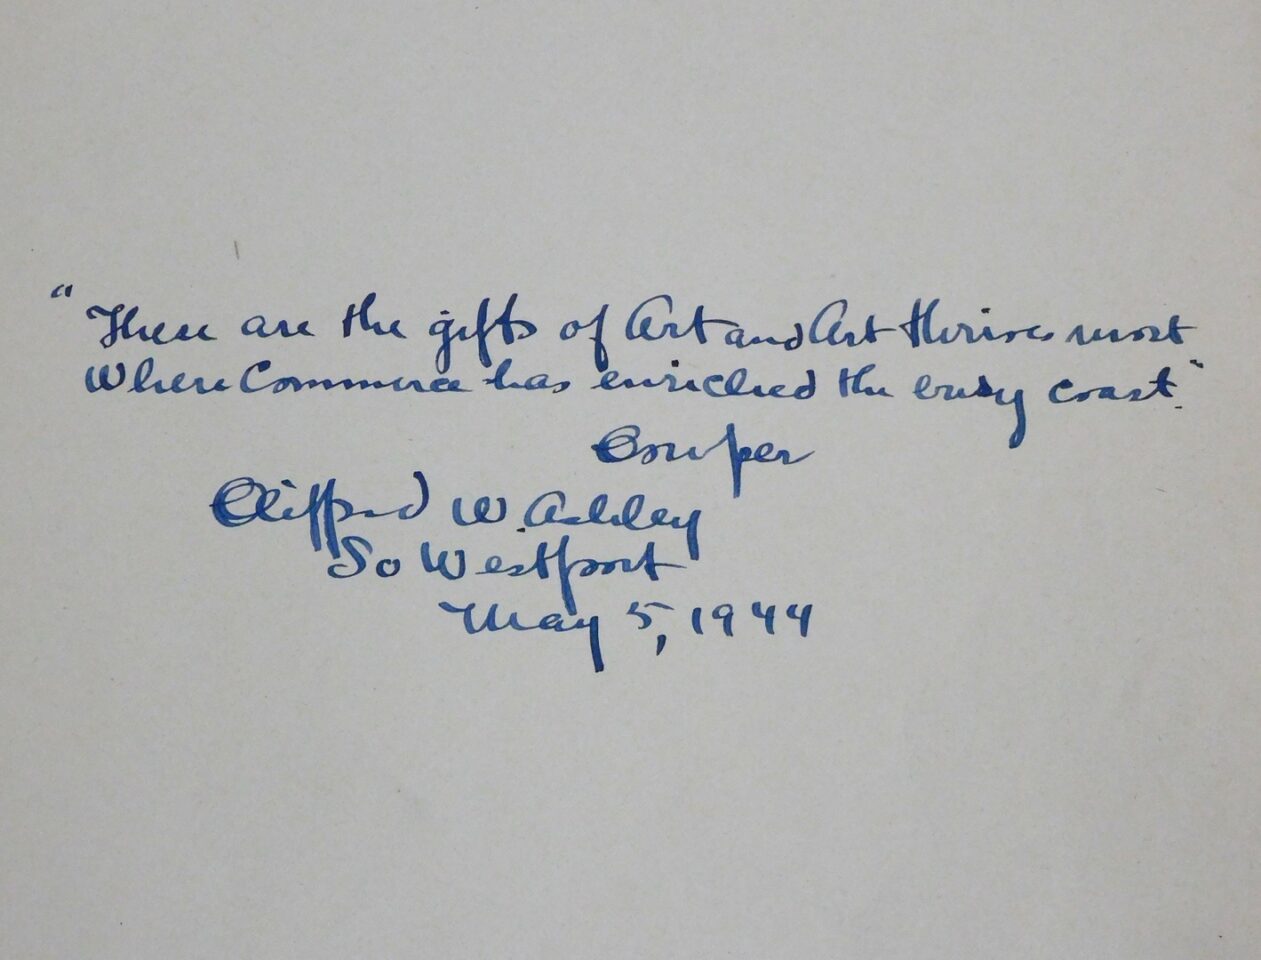 "These are the gifts of Art and Art thrives most
Where Commerce has enriched the busy coast."
Cowper
Clifford W. Ashley
So Westport
May 5, 1944